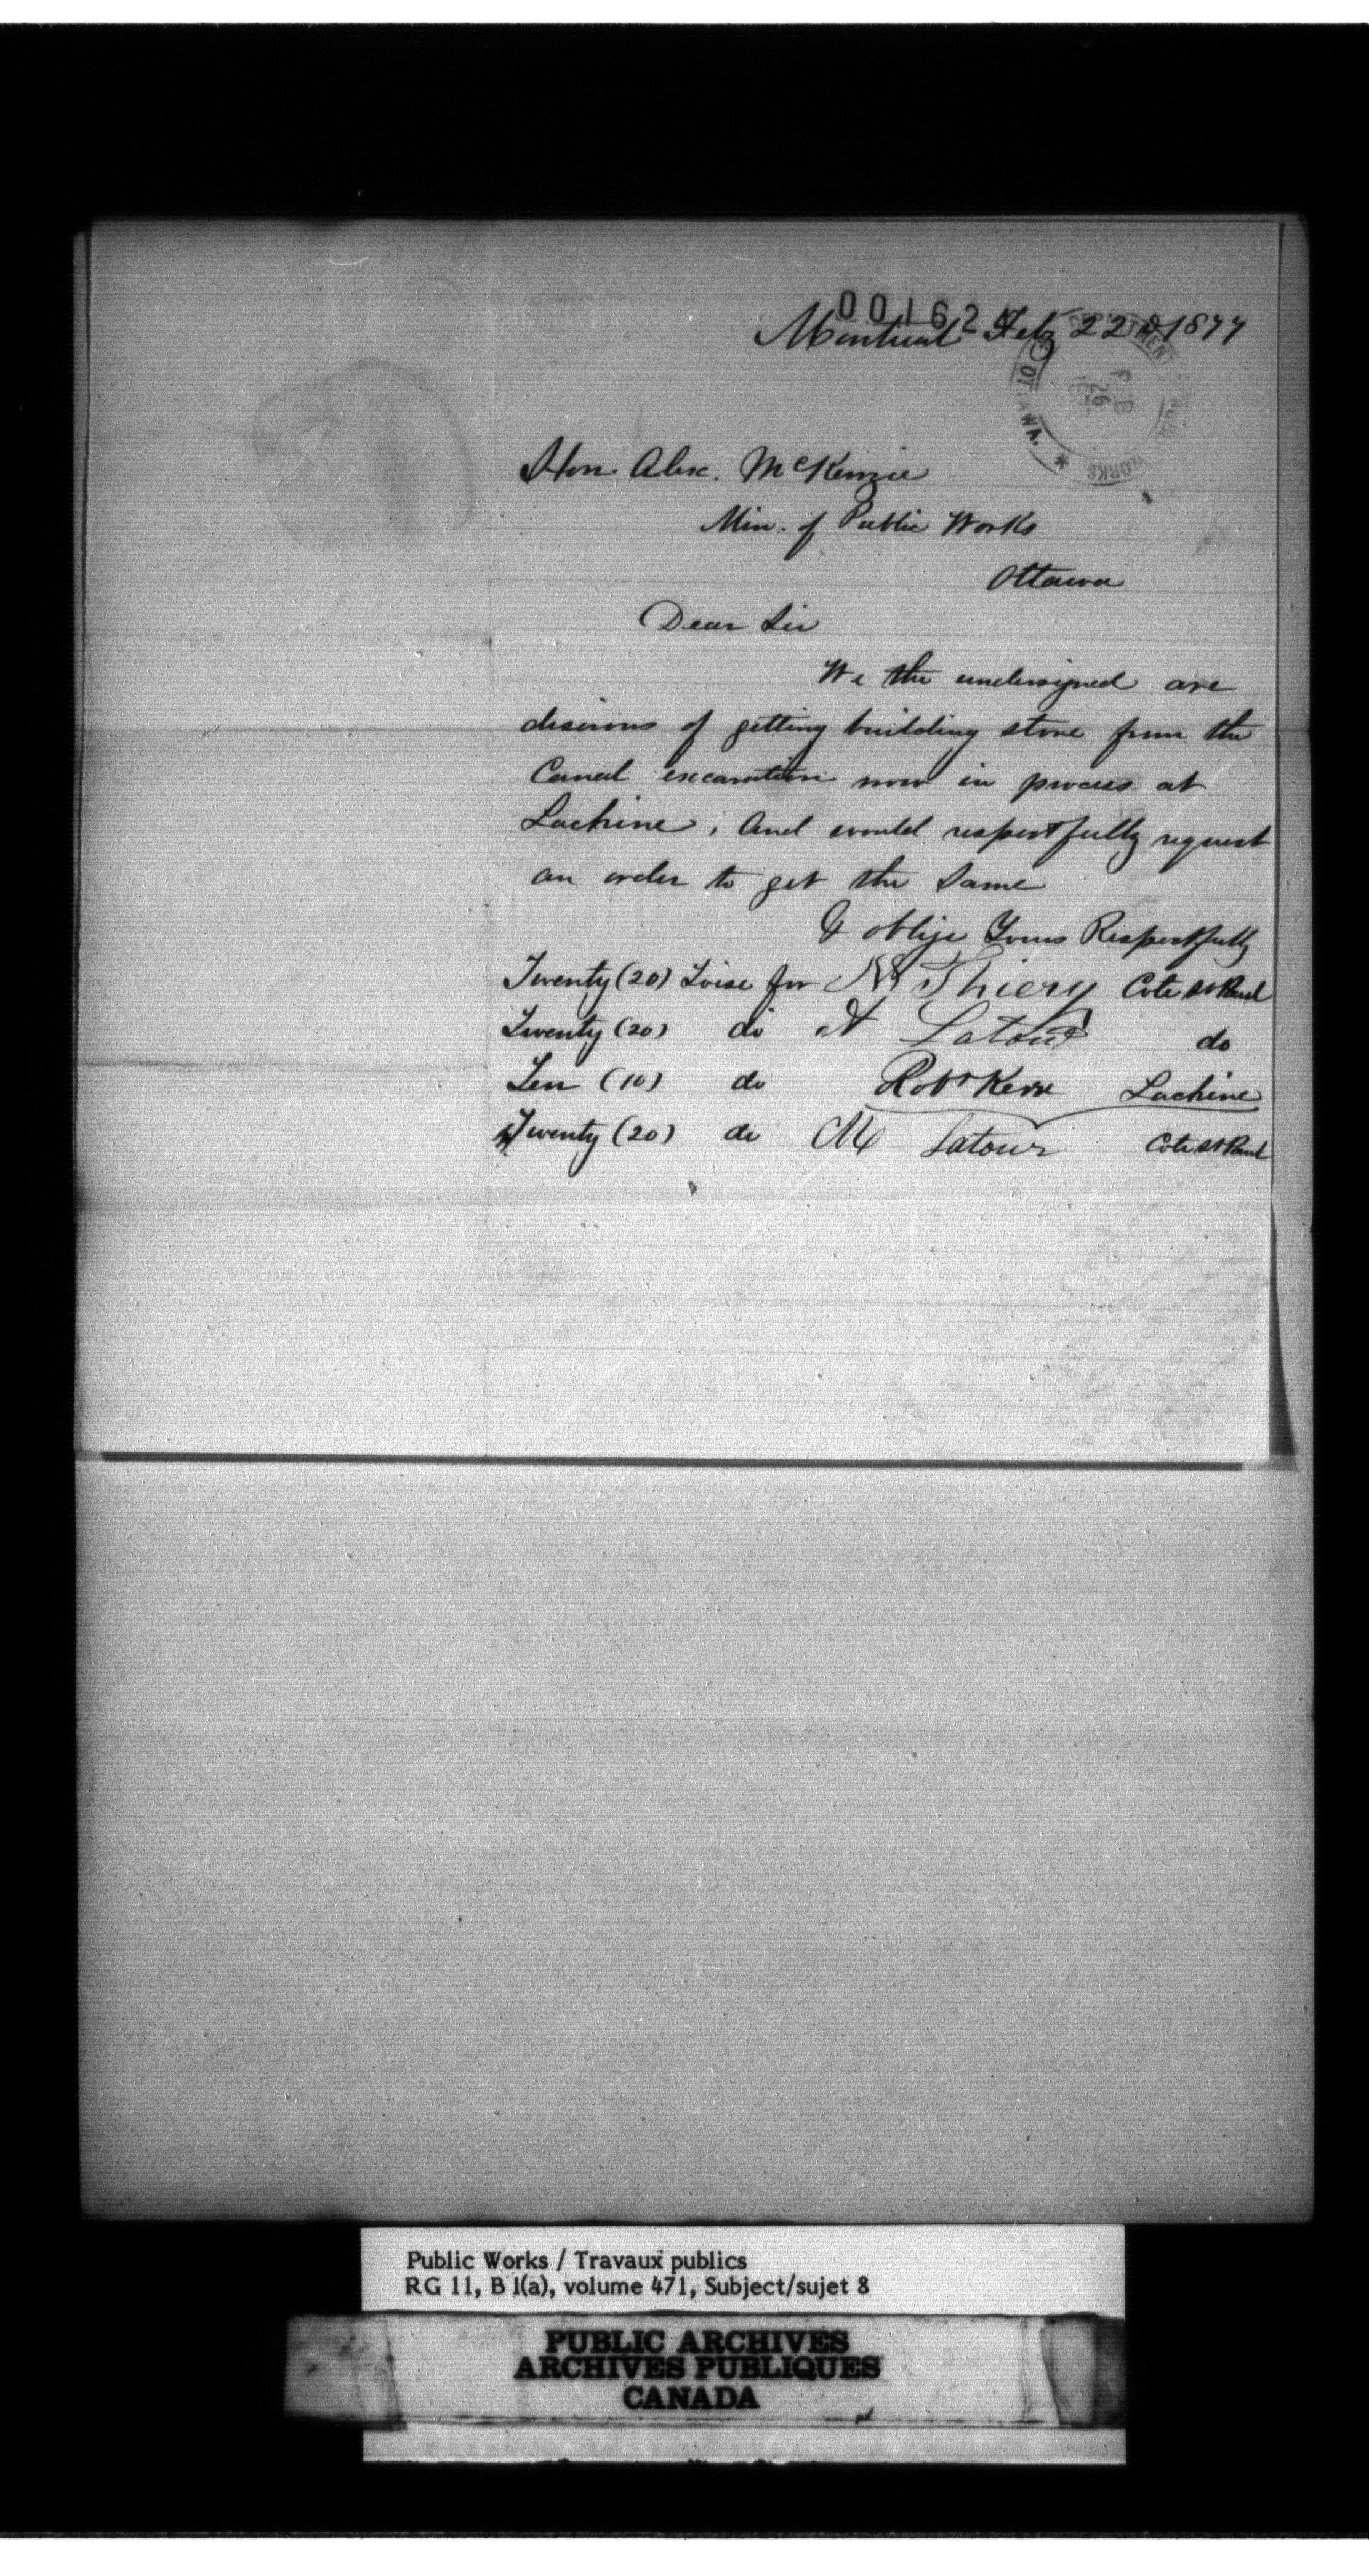 00162
Montreal Feby 22d 1877
DEPARTMENT PUBLIC WORKS * OTTAWA.
FEB
26
Hon. Alex. McKenzie
Min. of Public Works
Ottawa
Dear Sir
We the undersigned are
desirous of getting building stone from the
Canal excavation now in process at
Lachine, And would respectfully request
an order to get the Same
& oblije Yours Respectfully
Twenty (20) Toise for N Thiery Cote St Paul
Twenty (20) do A Latour do
Ten (10) do Robt Kerr Lachine
Twenty (20) do M Latour Cote St Paul
Public Works / Travaux publics
RG 11, B 1(a), volume 471, Subject/sujet 8
PUBLIC ARCHIVES
ARCHIVES PUBLIQUES
CANADA